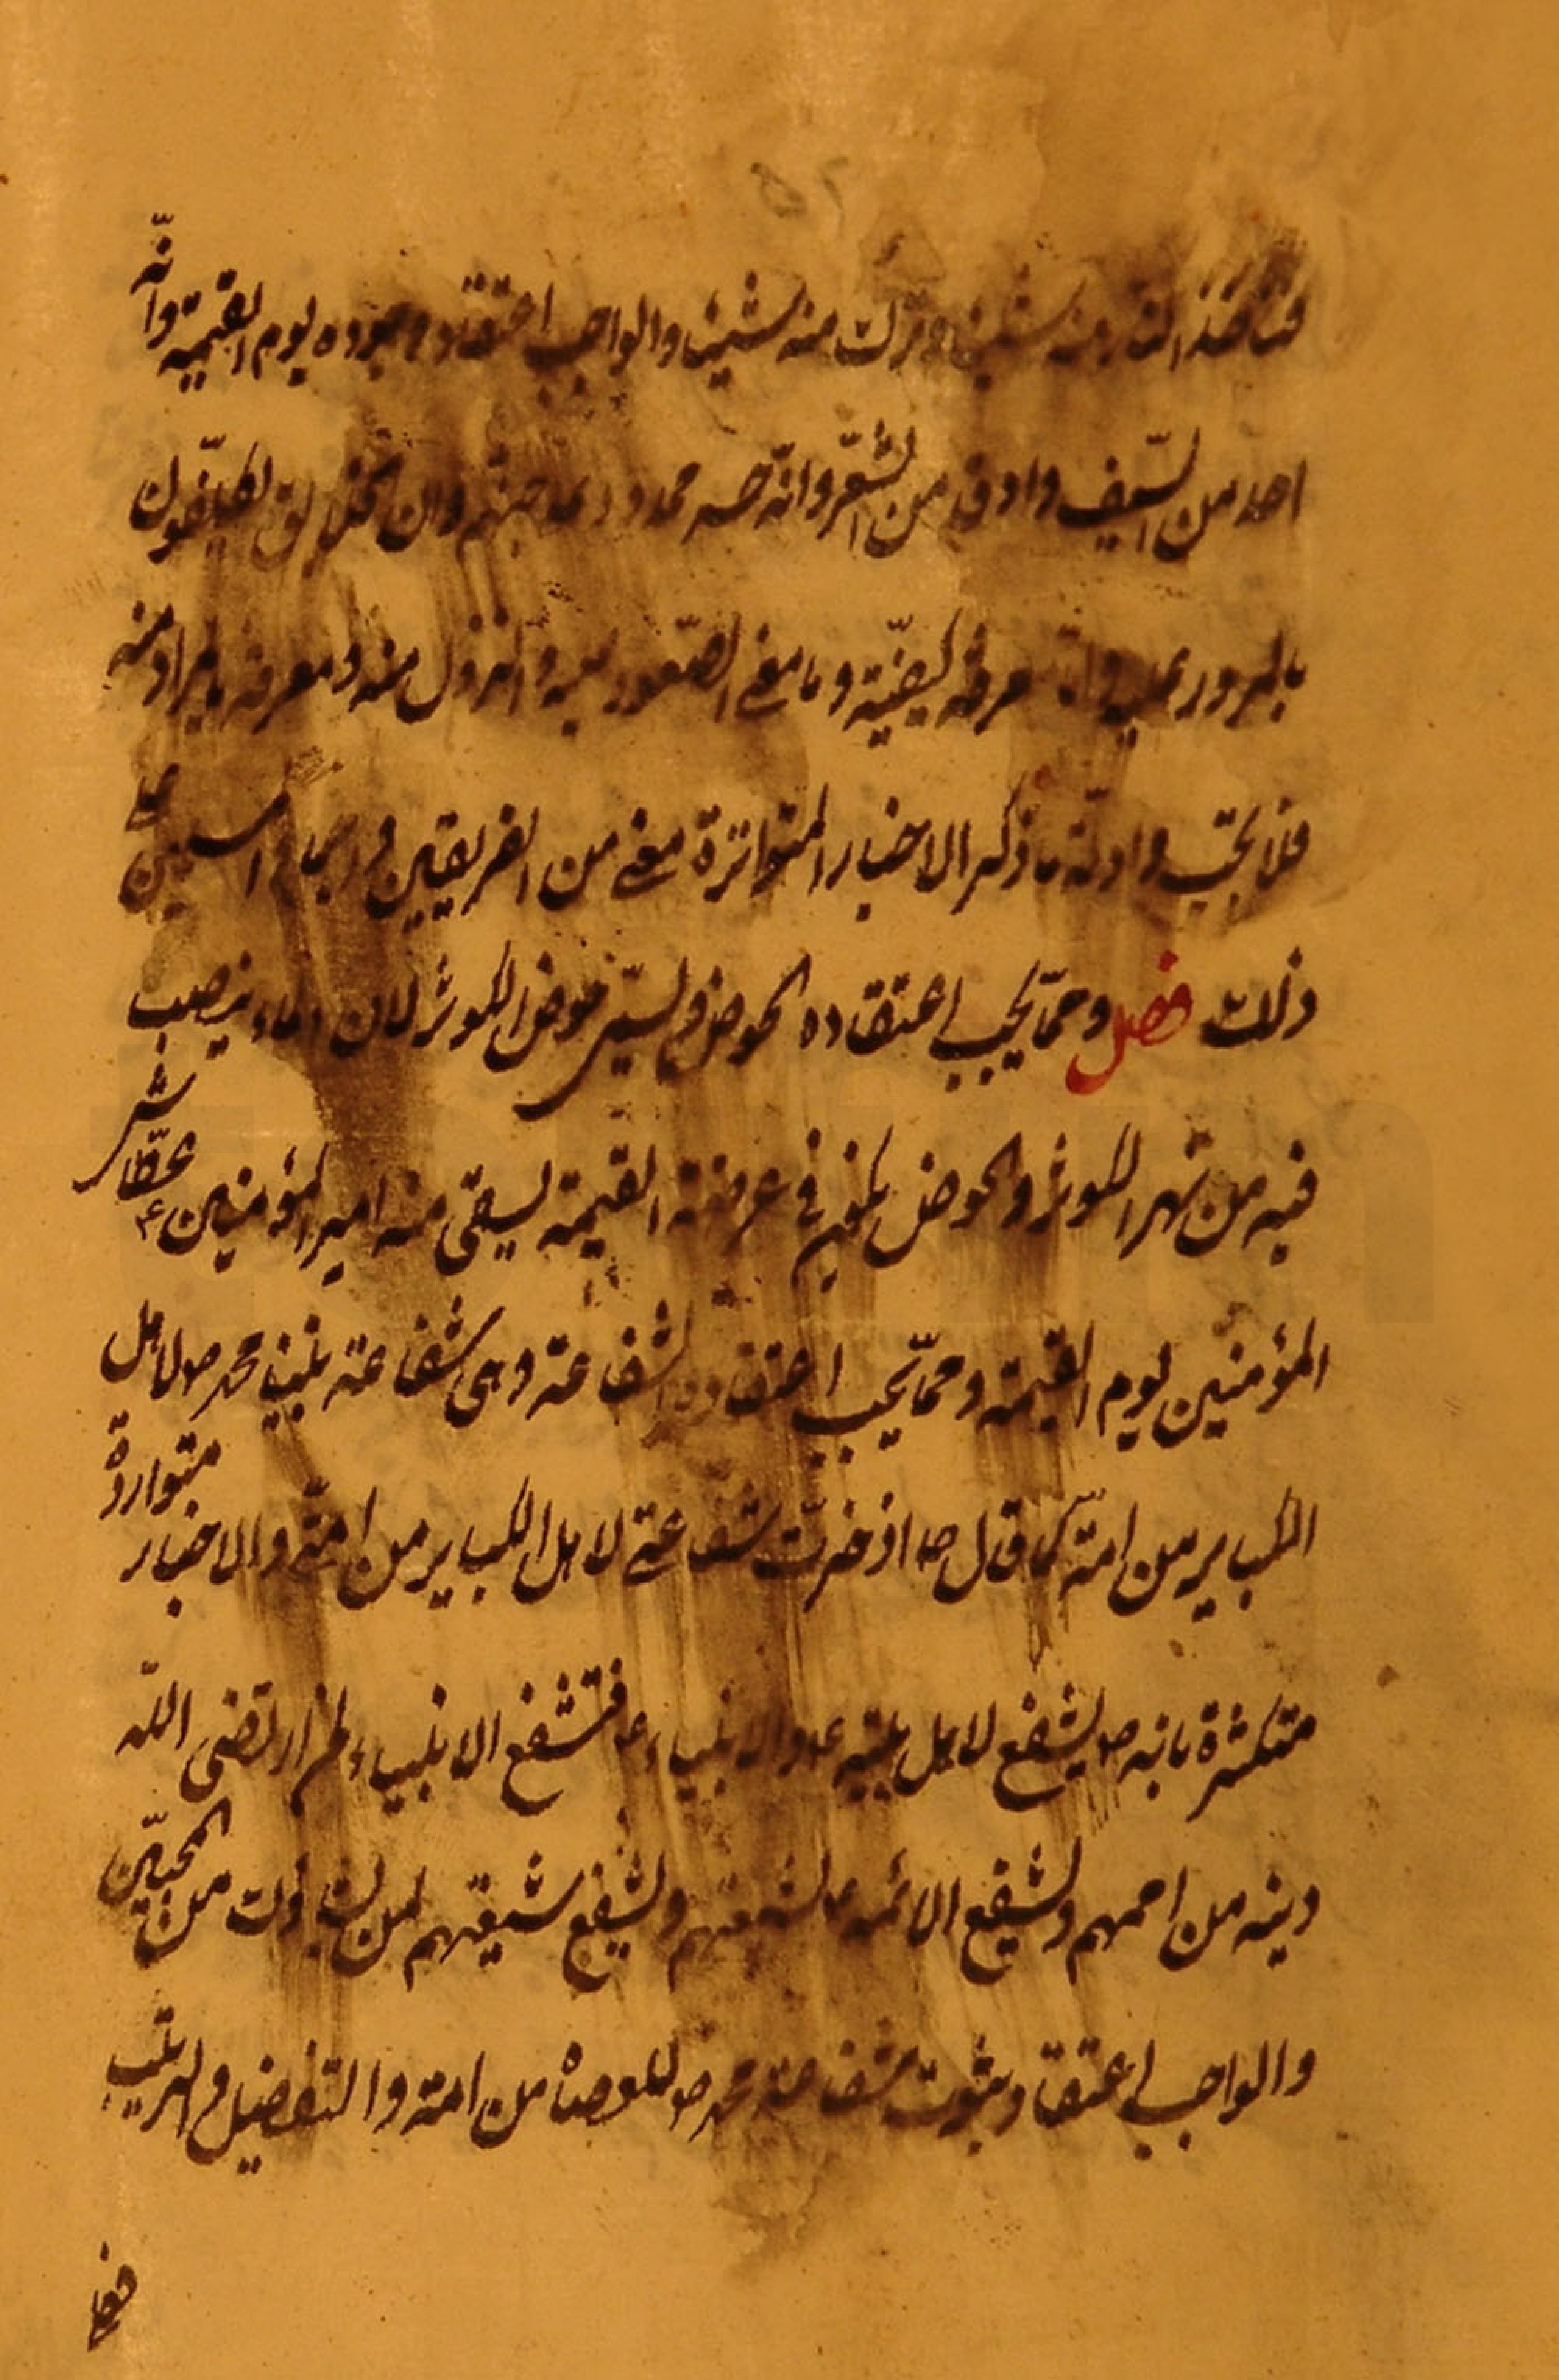 فتأخذ النار منه شيئا وتترك منه شيئا والواجب اعتقاد وجوده يوم القيمة وانّه
احد من السّيف وادق من الشّعر وانّه جسر ممدود على جهنم وان الخلايق لمكلّفون
بالمرور عليه وامّا معرفة كيفيّة وما معنى الصّعود عليه والنزول منه ومعرفة المراد منه
فلا يجب وادلّة ما ذكر الاخبار المتواترة معنى من الفريقين واجماع المسلمين على
ذلك فصل وممّا يجب اعتقاده الحوض ويسمّى حوض الكوثر لان ماءه يصب
فيه من نهر الكوثر والحوض في عرصة القيمة يسقى منه امير المؤمنين ع عطاشى
المؤمنين يوم القيمة وممّا يجب اعتقاده الشفاعة وهى شفاعة نبينا محمد ص لاهل
الكباير من امته كما قال ص اذخرت شفاعتى لاهل الكباير من امتى والاخبار متواردة
متكثرة بانه ص يشفع لاهل بيته ع والانبياء ع فتشفع الانبياء لمن ارتضى الله
دينه من اممهم ويشفع الائمة ع لشيعتهم ويشفع شيعتهم لمن شاؤا من المحبّين
والواجب اعتقاد ثبوت شفاعة محمد ص للعصاة من امته والتفصيل والترتيب